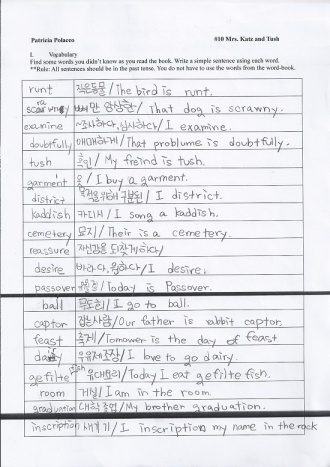 Patricia Polacco #10 Mrs. Katz and Tush
I. Vocabulary
Find some words you didn't know as you read the book. Write a simple sentence using each word.
**Rule: All sentences should be in the past tense. You do not have to use the words from the word-book.
runt 작은동물 / The bird is runt.
scrawny 만 앙상한 / That dog is scrawny.
examine ~조사하다, 심사하다 / I examine.
doubtfully 애매하게 / That problume is doubtfully.
tush / My freind is tush.
garment 옷 / I buy a garment.
district 구분된 / I district.
kaddish 카디쉬 / I song a kaddish.
cemetery 묘지 / Their is a cemetery.
reassure 자신감을 되찾게하다
desire 바라다, 원하다 / I desire.
passover / Today is Passover.
ball 무도회 / I go to ball.
captor 잡는사람 / Our father is rabbit captor.
feast 축제 / Tomower is the day of feast
dairy / I love to go dairy.
gefilte fish 유대요리 / Today I eat gefilte fish.
room 거실 / I am in the room.
graduation 대학졸업 / My brother graduation.
inscription 새기기 / I inscription my name in the rock